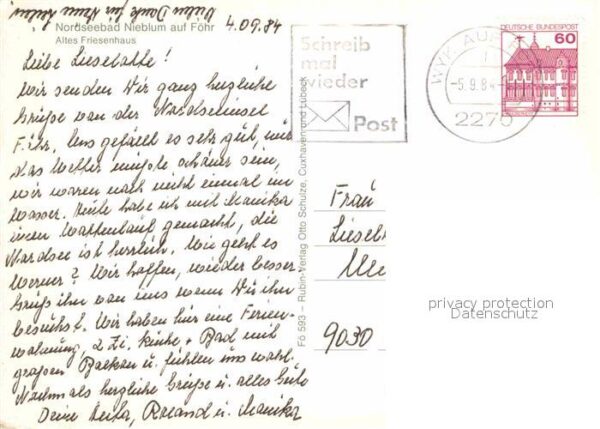 Vielen Dank für Deine Zeilen
Nordseebad Nieblum auf Föhr
Altes Friesenhaus
4.09.84
Liebe Lieselotte!
wir senden Dir ganz herzliche
Grüße von der Nordseeinsel
Föhr. Uns gefällt es sehr gut, nur
das Wetter müßte schöner sein,
wir waren noch nicht einmal im
Wasser. Heute habe ich mit Monika
eine Wattenlauf gemacht, die
Nordsee ist herrlich. Wie geht es
Werner? Wir hoffen, wieder besser.
Grüß ihn von uns wenn Du ihn
besuchst. Wir haben hier eine Ferien-
wohnung, 2 Zi. Küche + Bad mit
großen Balkon u. fühlen uns wohl.
Nochmals herzliche Grüße u. alles Gute
Deine Roland u. Monika
Fö 593 – Rubin-Verlag Otto Schulze, Cuxhaven und Lübeck
Schreib
mal
wieder
Post
WYK AUF
-5.9.84
2270
DEUTSCHE BUNDESPOST
60
Frau
Liesel
9030
privacy protection
Datenschutz